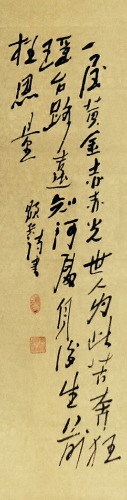 一黄金赤赤光世人为此苦奔狂
瑶台路遠知何處身後生前
枉思量